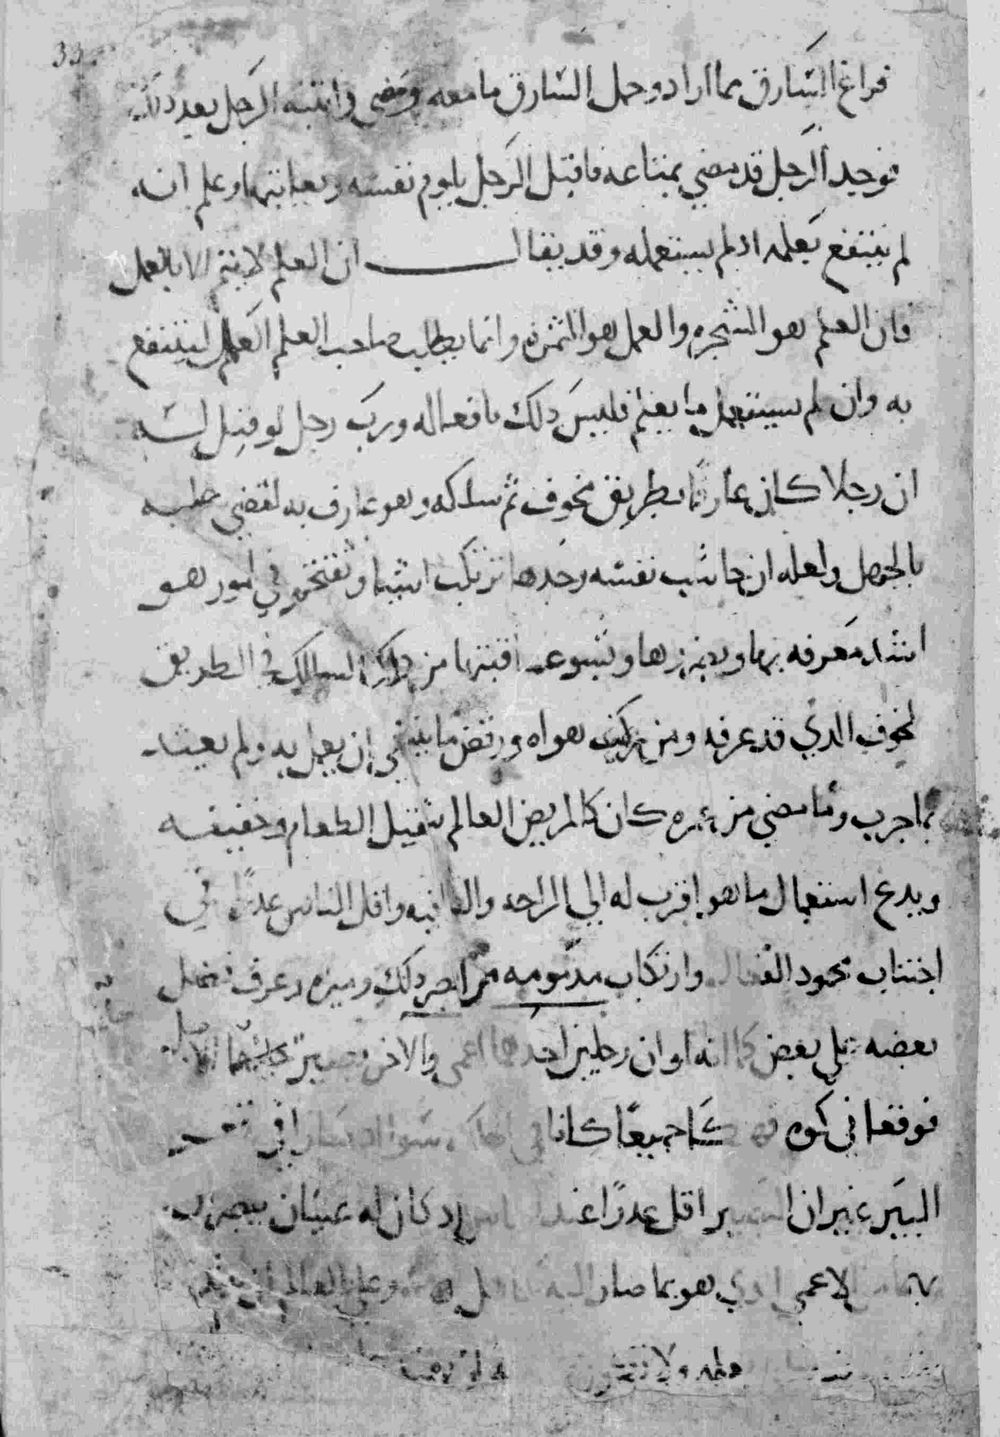 33
فراغ السّارق مما اراد وحمل السّارق ما معه ومضى وانتبه الرجل بعد ذلك
فوجد الرجل قد مضي بمتاعه فاقبل الرجل يلوم نفسه ويعاتبها وعلم انه
لم ينتفع بعلمه اد لم يستعمله وقد يقال ان العلم لا يتم الا بالعمل
وان العلم هو الشجره والعمل هو الثمره وانما يطلب صاحب العلم العلم لينتفع
به وان لم يستعمل ما يعلم فليس دلك نافعا له ورب رجل لو قيل له
ان رجلا كان عارفا بطريق مخوف ثم سلكه وهو عارف به لقضي عليه
بالجهل ولعله ان حاسب نفسه وجدها تركب اشيا وتقتحم في امور هو
اشد معرفه بها وبضررها وبسوء عاقبتها من دلك السالك في الطريق
المخوف الدي قد عرفه ومن ركب هواه ورفض ما ينبغي ان يعمل به ولم يعتبر
بما جرب وما مضي من غيره كان كالمريض العالم بثقيل الطعام وخفيفه
ويدع استعمال ما هو اقرب له الي الراحه والعافيه واقل الناس عدرًا في
اجتناب محمود الفعال وارتكاب مدمومه من ابصر دلك وميزه وعرف فضل
بعضه علي بعض كما انه لو ان رجلين احدهما اعمى والاخر بصير
فوقعا في كوه كا جميعًا كانا في سوا في قعر
البير غير ان البصير اقل عدرًا عند الناس اد كان له عينان يبصر
بهما من الاعمى الدي هو بما صار اليه وعلي العالم ان
علمه ولا